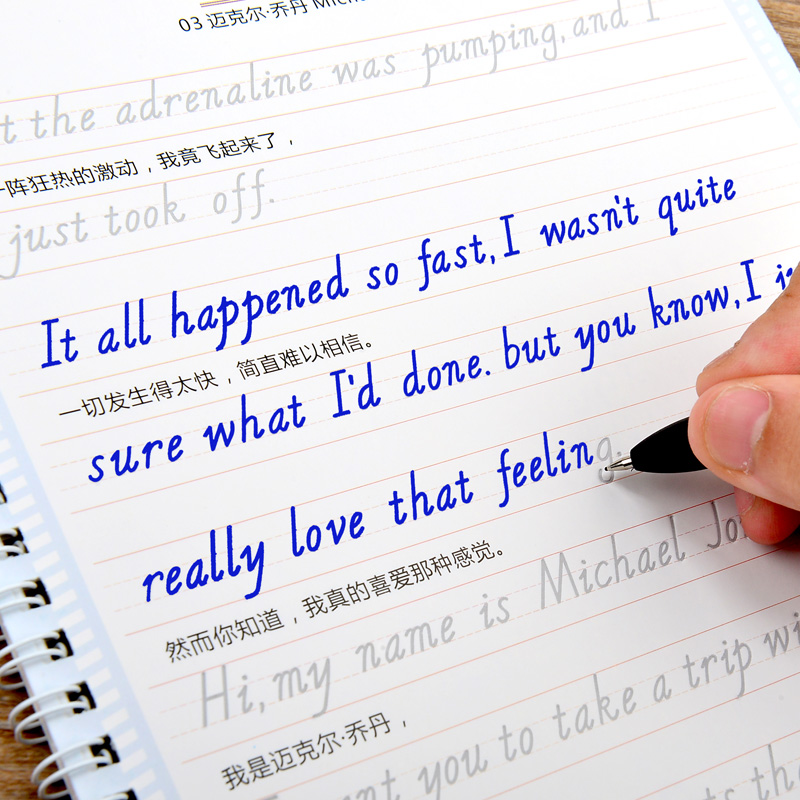 03 迈克尔·乔丹
the adrenaline was pumping, and I
一阵狂热的激动，我竟飞起来了，
just took off.
It all happened so fast, I wasn't quite
一切发生得太快，简直难以相信。
sure what I'd done. but you know, I
really love that feeling.
然而你知道，我真的喜爱那种感觉。
Hi, my name is Michael
我是迈克尔·乔丹，
you to take a trip